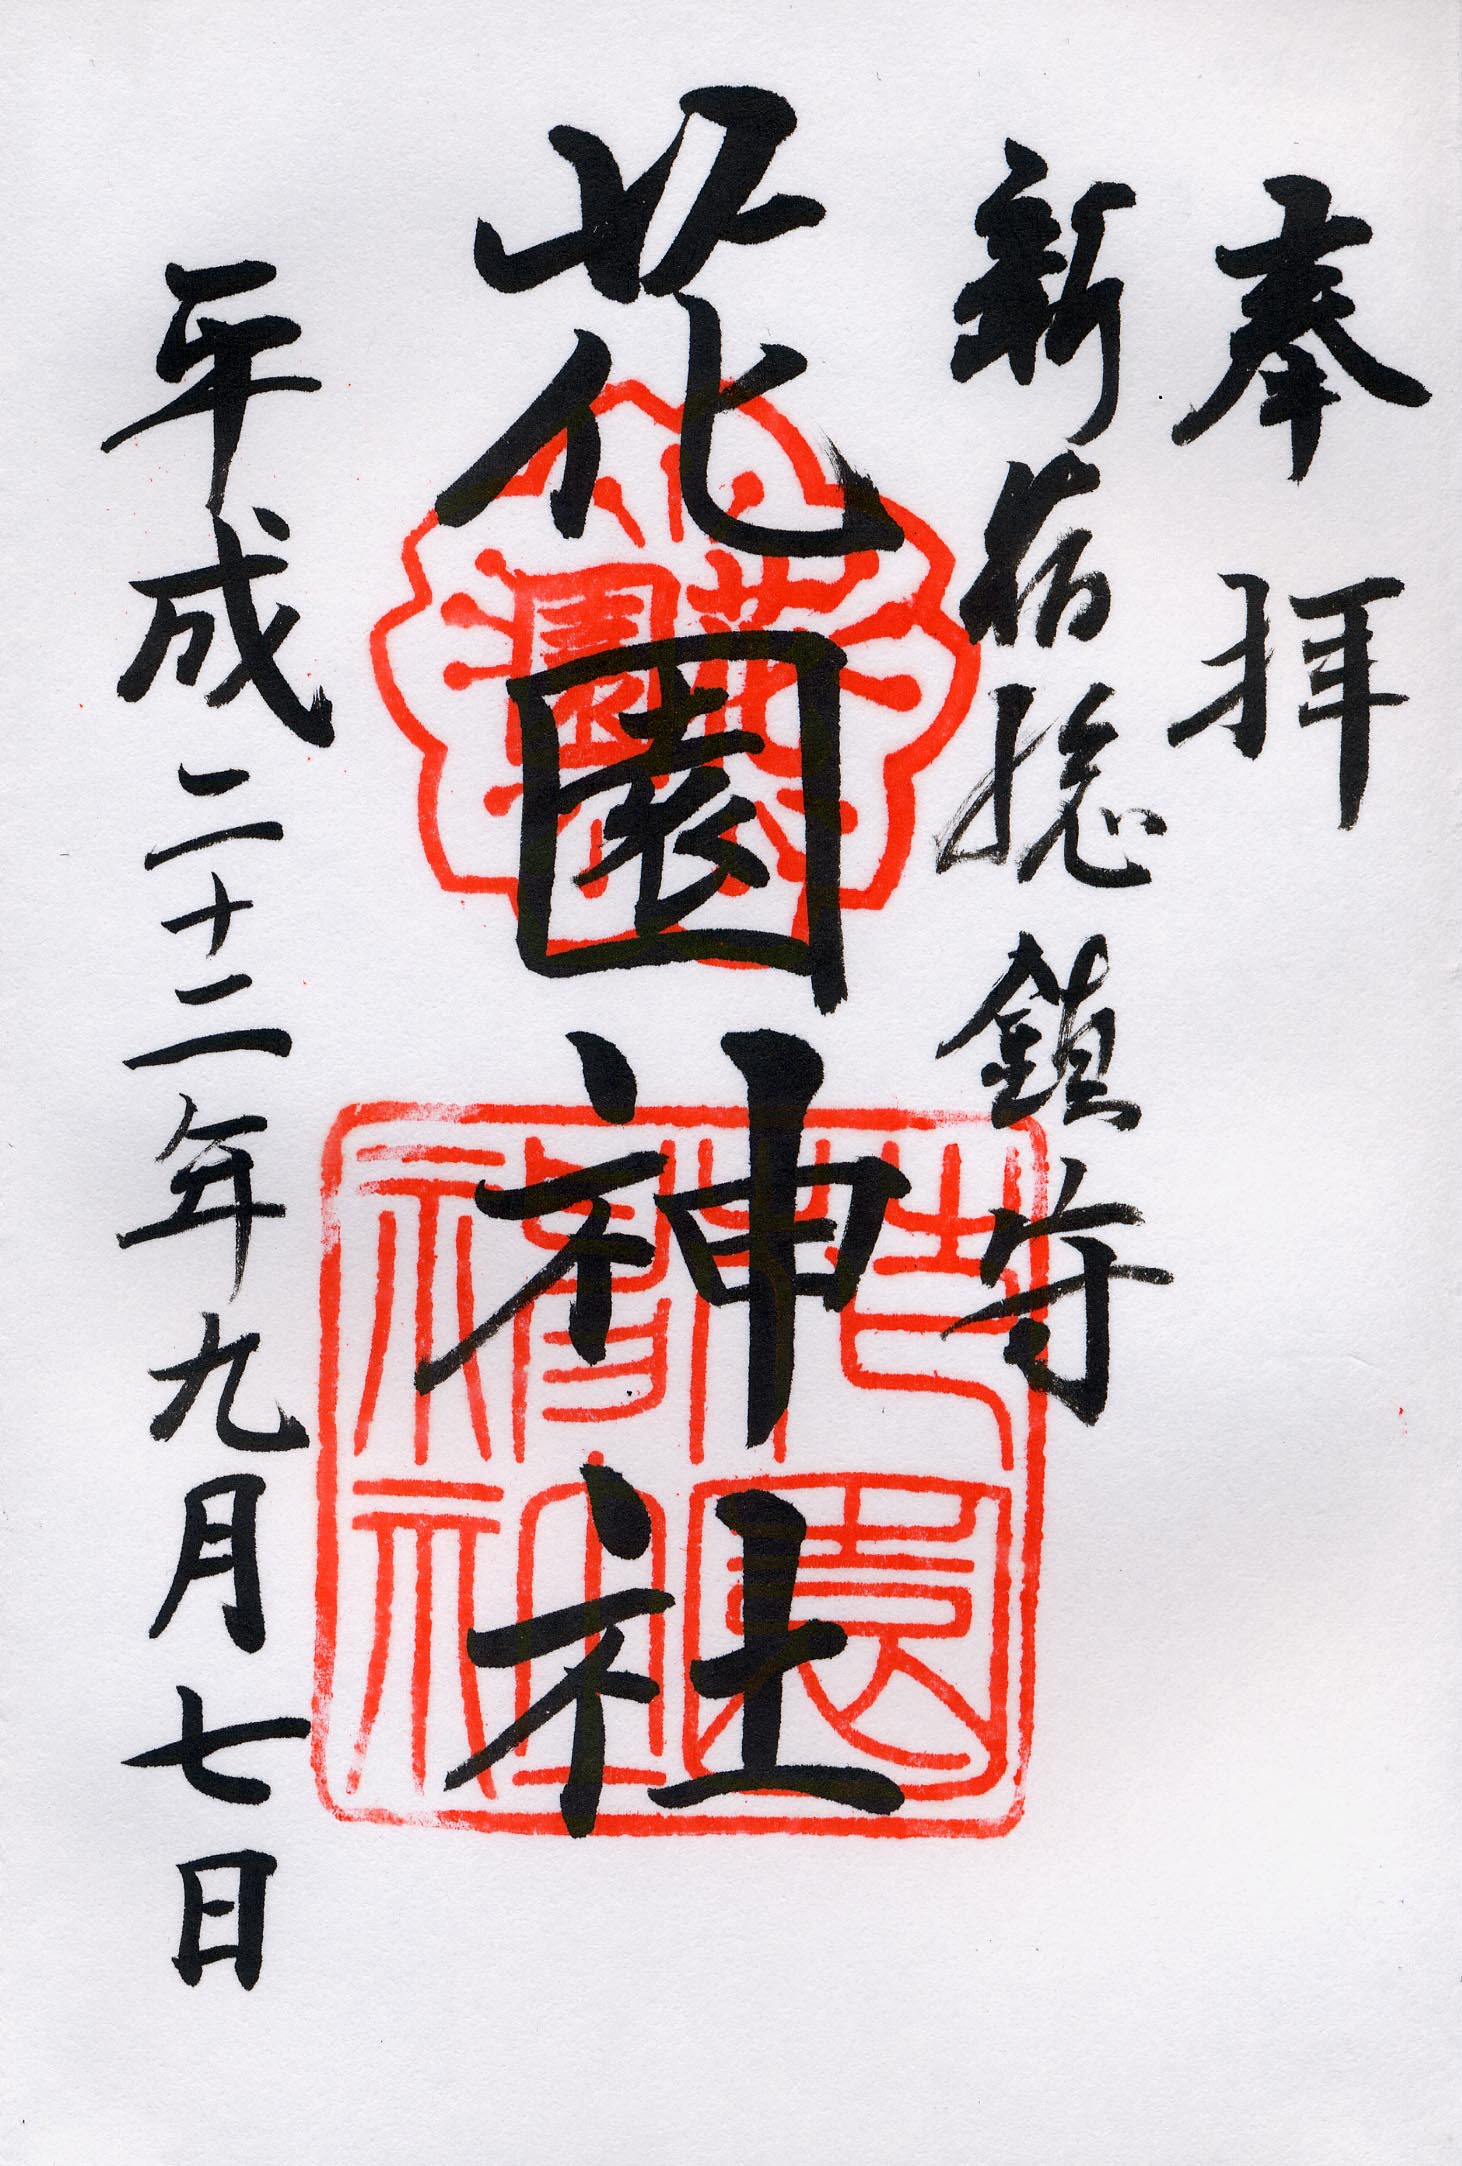 奉拝
新宿総鎮守
花園神社
花園
花園神社
平成二十二年九月七日